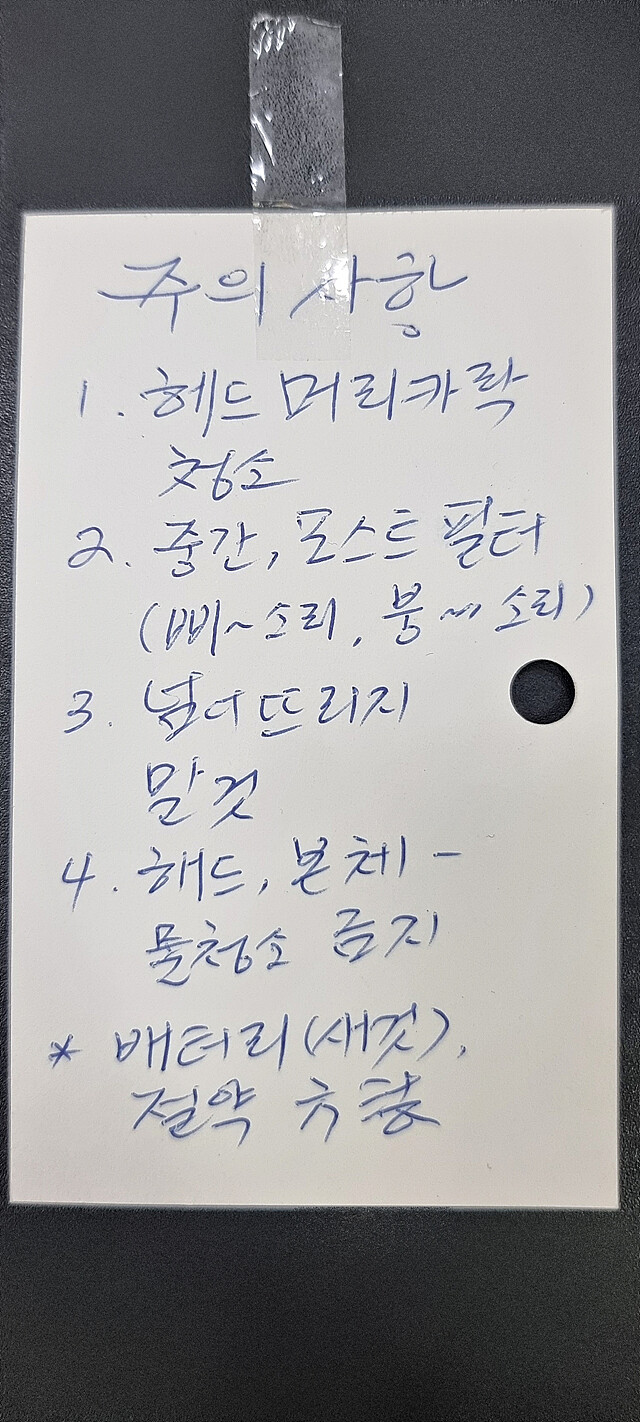 주의 사항
1. 헤드 머리카락
청소
2. 중간, 포스트 필터
(삐~소리, 붕~ 소리)
3. 넘어뜨리지
말것
4. 해드, 본체 -
물청소 금지
* 배터리(새것),
절약